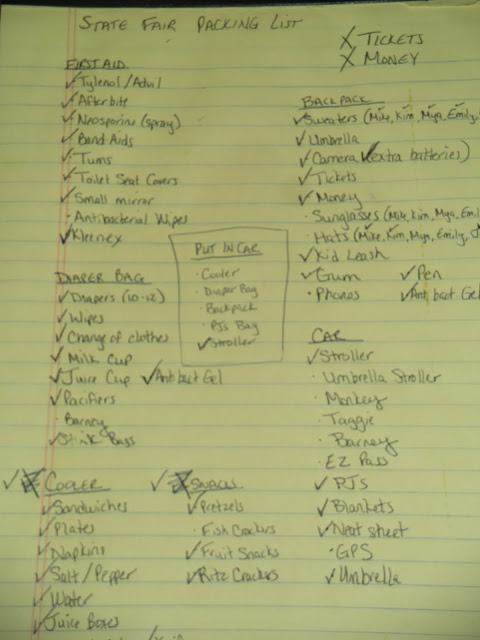 STATE FAIR PACKING LIST
X TICKETS
X MONEY
FIRST AID
✓Tylenol/Advil
✓Afterbite
✓Neosporin (spray)
✓Band Aids
✓Tums
✓Toilet Seat Covers
✓Small mirror
· Antibacterial Wipes
✓Kleenex
BACKPACK
✓Sweaters (Mike, Kim, Mya, Emily,
✓Umbrella
✓Camera (extra batteries)
✓Tickets
✓Money
· Sunglasses (Mike, Kim, Mya, Emi
· Hats (Mike, Kim, Mya, Emily,
✓Kid Leash
✓Gum ✓Pen
· Phones ✓Antibact Gel
PUT IN CAR
· Cooler
· Diaper Bag
· Backpack
· PJs Bag
✓Stroller
DIAPER BAG
✓Diapers (10-12)
✓Wipes
✓Change of clothes
✓Milk Cup
✓Juice Cup ✓Antibact Gel
✓Pacifiers
· Barney
✓Stink Bags
CAR
✓Stroller
· Umbrella Stroller
· Monkey
· Taggie
· Barney
· EZ Pass
✓PJs
✓Blankets
✓Neat sheet
· GPS
✓Umbrella
✓ COOLER
✓Sandwiches
✓Plates
✓Napkins
✓Salt/Pepper
✓Water
✓Juice Boxes
✓ SNACKS
✓Pretzels
· Fish Crackers
✓Fruit Snacks
✓Ritz Crackers